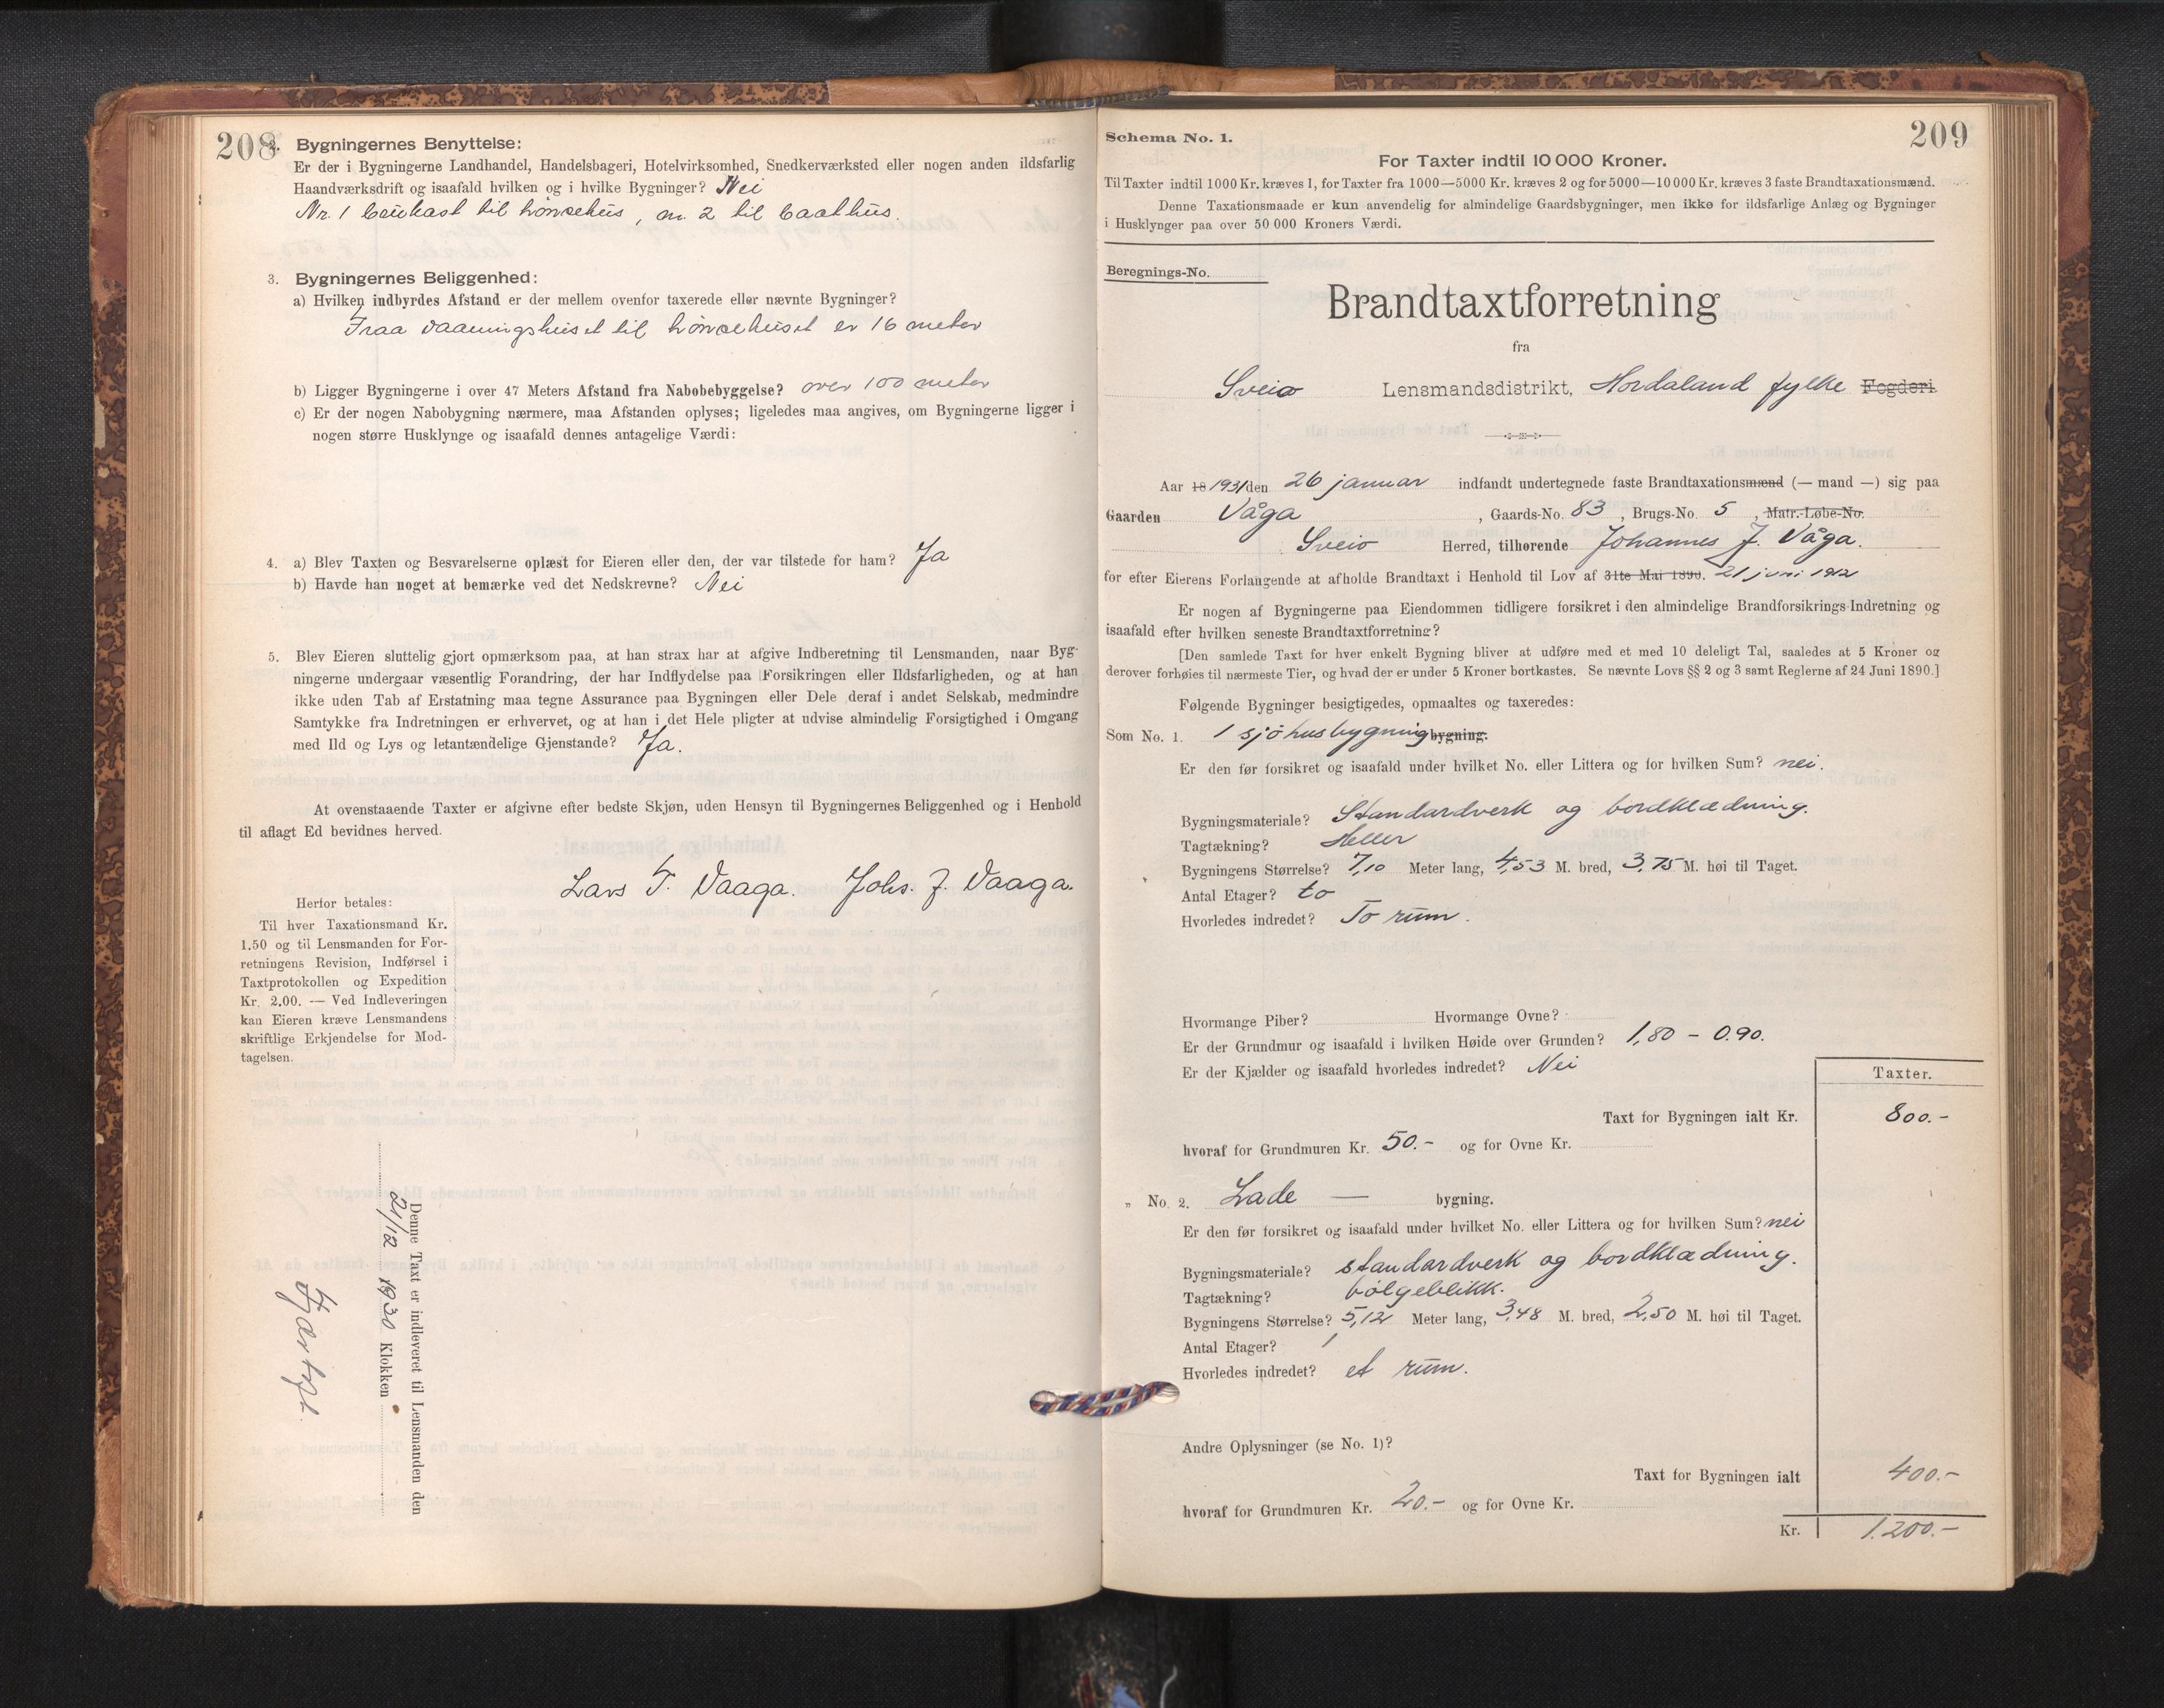 208
2. Bygningernes Benyttelse:
Er der i Bygningerne Landhandel, Handelsbageri, Hotelvirksomhed, Snedkerværksted eller nogen anden ildsfarlig
Haandværksdrift og isaafald hvilken og i hvilke Bygninger? Nei
Nr. 1 til hönsehus, nr. 2 til baathus.
3. Bygningernes Beliggenhed:
a) Hvilken indbyrdes Afstand er der mellem ovenfor taxerede eller nævnte Bygninger?
Fraa vaaningshuset til hönsehuset er 16 meter
b) Ligger Bygningerne i over 47 Meters Afstand fra Nabobebyggelse? over 100 meter
c) Er der nogen Nabobygning nærmere, maa Afstanden oplyses; ligeledes maa angives, om Bygningerne ligger i
nogen større Husklynge og isaafald dennes antagelige Værdi:
4. a) Blev Taxten og Besvarelserne oplæst for Eieren eller den, der var tilstede for ham? Ja
b) Havde han noget at bemærke ved det Nedskrevne? Nei
5. Blev Eieren sluttelig gjort opmærksom paa, at han strax har at afgive Indberetning til Lensmanden, naar Byg-
ningerne undergaar væsentlig Forandring, der har Indflydelse paa Forsikringen eller Ildsfarligheden, og at han
ikke uden Tab af Erstatning maa tegne Assurance paa Bygningen eller Dele deraf i andet Selskab, medmindre
Samtykke fra Indretningen er erhvervet, og at han i det Hele pligter at udvise almindelig Forsigtighed i Omgang
med Ild og Lys og letantændelige Gjenstande? Ja.
At ovenstaaende Taxter er afgivne efter bedste Skjøn, uden Hensyn til Bygningernes Beliggenhed og i Henhold
til aflagt Ed bevidnes herved.
Lars T. Vaaga. Johs. J. Vaaga.
Herfor betales:
Til hver Taxationsmand Kr.
1.50 og til Lensmanden for For-
retningens Revision, Indførsel i
Taxtprotokollen og Expedition
Kr. 2.00. — Ved Indleveringen
kan Eieren kræve Lensmandens
skriftlige Erkjendelse for Mod-
tagelsen.
Denne Taxt er indleveret til Lensmanden den
21/12 1930 Klokken
Schema No. 1.
209
For Taxter indtil 10 000 Kroner.
Til Taxter indtil 1000 Kr. kræves 1, for Taxter fra 1000—5000 Kr. kræves 2 og for 5000—10 000 Kr. kræves 3 faste Brandtaxationsmænd.
Denne Taxationsmaade er kun anvendelig for almindelige Gaardsbygninger, men ikke for ildsfarlige Anlæg og Bygninger
i Husklynger paa over 50 000 Kroners Værdi.
Beregnings-No.
Brandtaxtforretning
fra
Sveio Lensmandsdistrikt, Hordaland fylke Fogderi
Aar 18 1931 den 26 januar indfandt undertegnede faste Brandtaxationsmænd (— mand —) sig paa
Gaarden Våga, Gaards-No. 83, Brugs-No. 5, Matr.-Løbe-No.
Sveio Herred, tilhørende Johannes J. Våga.
for efter Eierens Forlangende at afholde Brandtaxt i Henhold til Lov af 31te Mai 1890. 21 juni 1912
Er nogen af Bygningerne paa Eiendommen tidligere forsikret i den almindelige Brandforsikrings-Indretning og
isaafald efter hvilken seneste Brandtaxtforretning?
[Den samlede Taxt for hver enkelt Bygning bliver at udføre med et med 10 deleligt Tal, saaledes at 5 Kroner og
derover forhøies til nærmeste Tier, og hvad der er under 5 Kroner bortkastes. Se nævnte Lovs §§ 2 og 3 samt Reglerne af 24 Juni 1890.]
Følgende Bygninger besigtigedes, opmaaltes og taxeredes:
Som No. 1. 1 sjöhusbygning bygning.
Er den før forsikret og isaafald under hvilket No. eller Littera og for hvilken Sum? nei.
Bygningsmateriale? Standardverk og bordklædning.
Tagtækning? Heller
Bygningens Størrelse? 7,10 Meter lang, 4,53 M. bred, 3,75 M. høi til Taget.
Antal Etager? to
Hvorledes indredet? To rum.
Hvormange Piber? Hvormange Ovne?
Er der Grundmur og isaafald i hvilken Høide over Grunden? 1,80 – 0.90.
Er der Kjælder og isaafald hvorledes indredet? Nei
Taxter.
Taxt for Bygningen ialt Kr. 800.-
hvoraf for Grundmuren Kr. 50.- og for Ovne Kr.
„ No. 2. Lade — bygning.
Er den før forsikret og isaafald under hvilket No. eller Littera og for hvilken Sum? nei
Bygningsmateriale? standardverk og bordklædning.
Tagtækning? bölgeblikk.
Bygningens Størrelse? 5,12 Meter lang, 3,48 M. bred, 2,50 M. høi til Taget.
Antal Etager? 1
Hvorledes indredet? et rum.
Andre Oplysninger (se No. 1)?
Taxt for Bygningen ialt 400.-
hvoraf for Grundmuren Kr. 20.- og for Ovne Kr.
Kr. 1.200.-